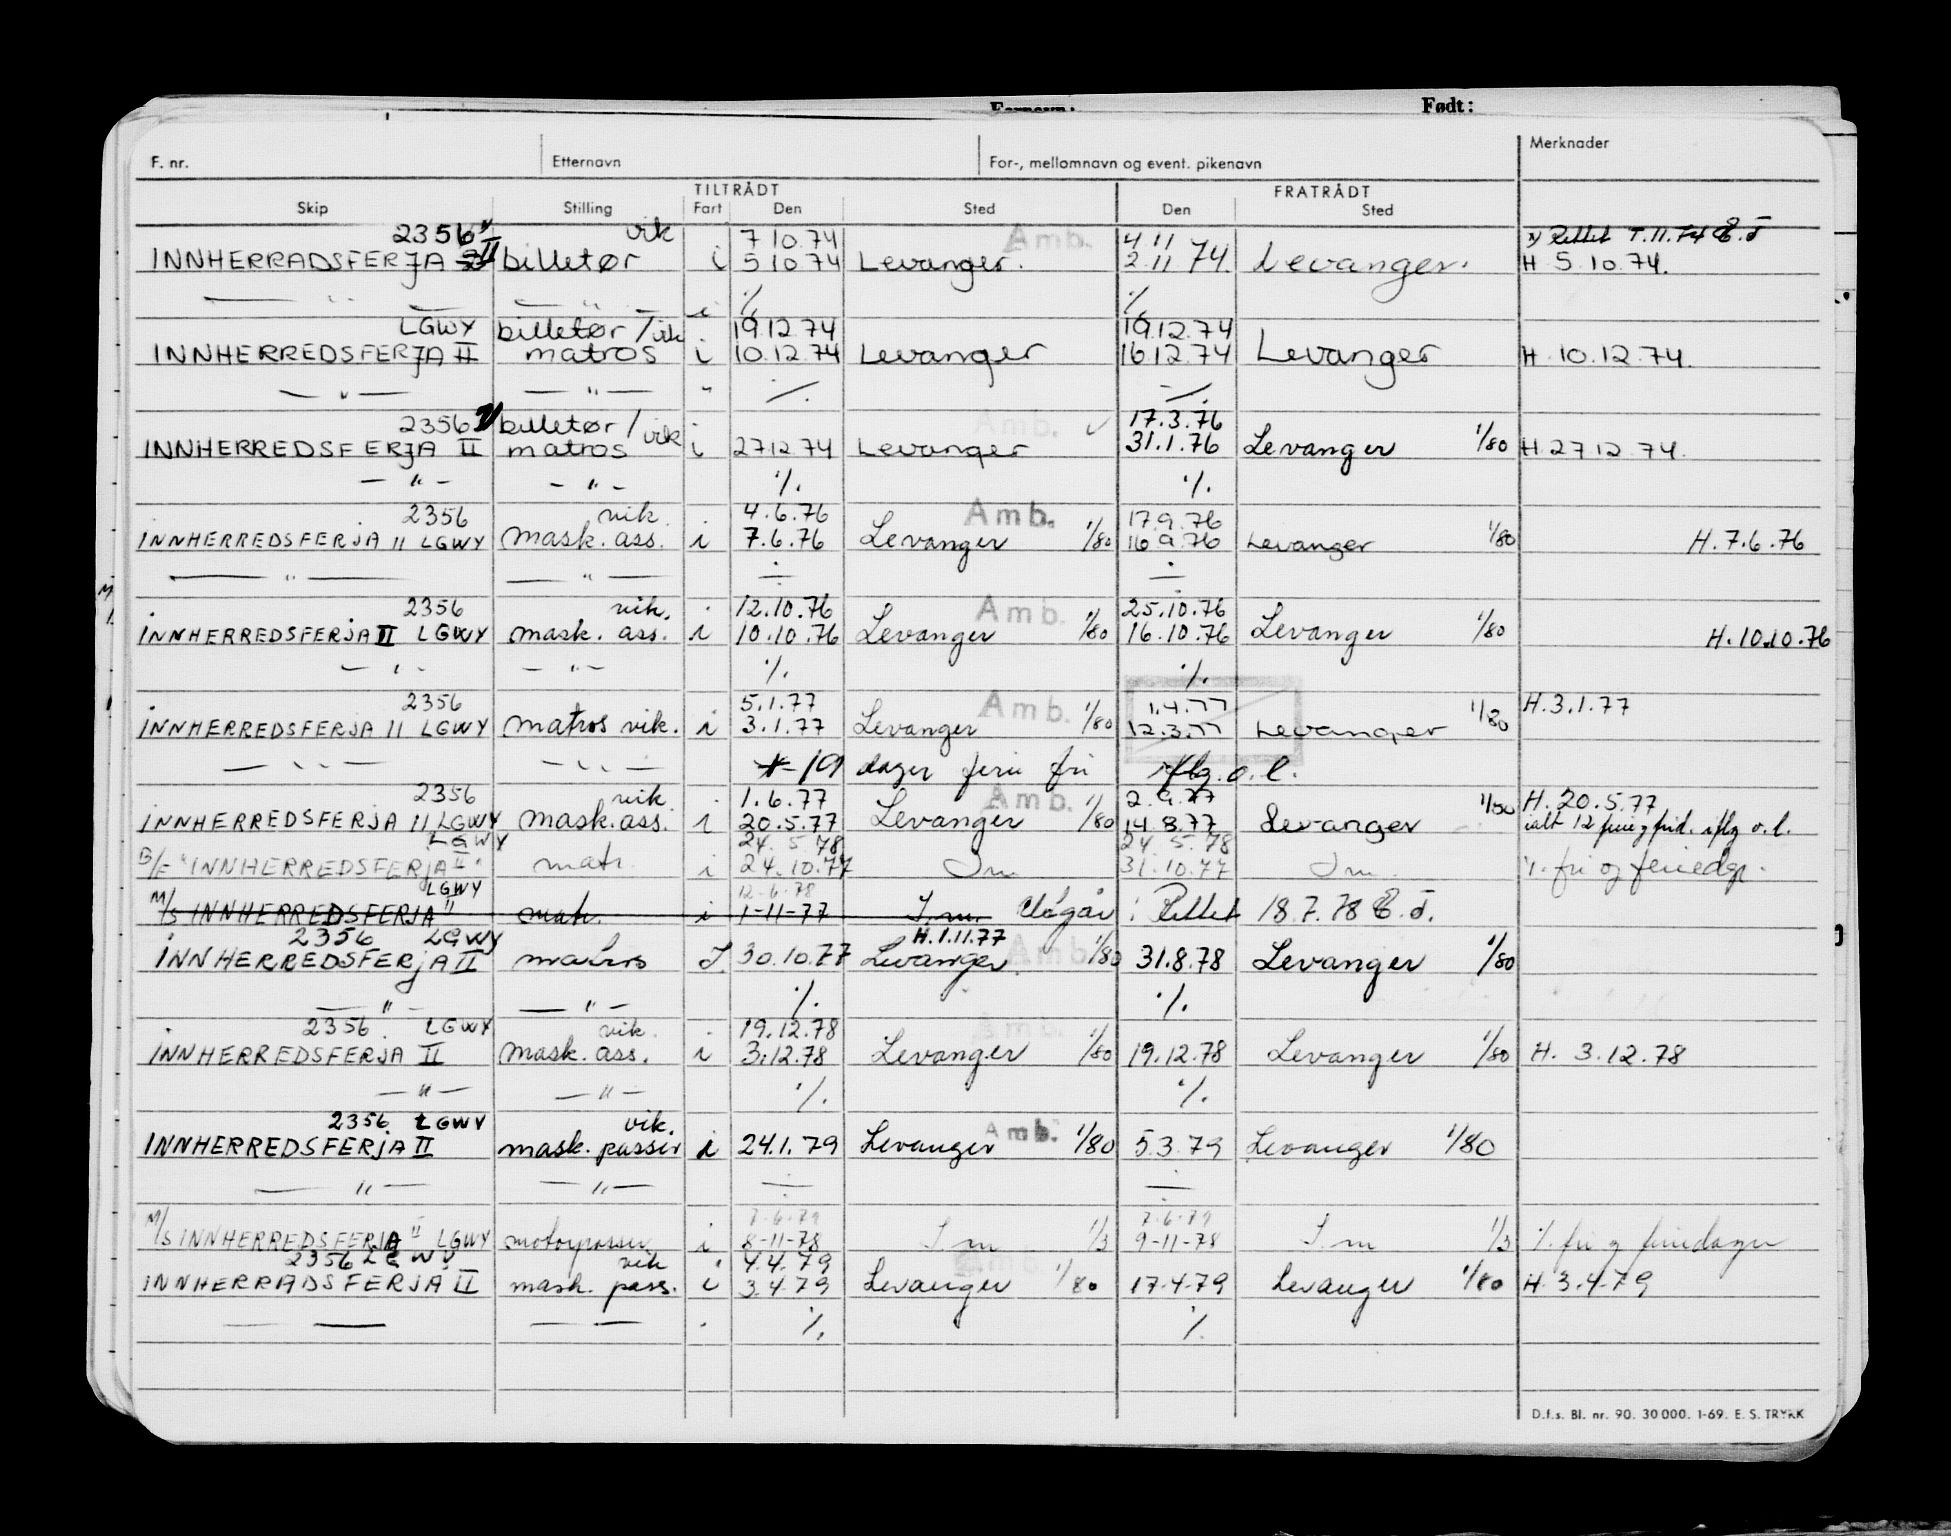 Fornavn: Født:
F. nr. Etternavn For-, mellomnavn og event. pikenavn Merknader
TILTRÅDT FRATRÅDT
Skip Stilling Fart Den Sted Den Sted
2356 vik 7 10.74 Amb. 4.11 Rettet 7.11.74
INNHERRADSFERJA II billetør i 5 10 74 Levanger. 2.11 74. Levanger. H 5.10.74.
— " — — " — i % %
LGWY billetør / vik 19.12.74 19.12.74
INNHERREDSFERJA II matros i 10.12.74 Levanger 16.12.74 Levanger H. 10.12.74.
— " — — " — " % %
2356 billetør / vik Amb. 17.3.76
INNHERREDSFERJA II matros i 27 12 74 Levanger 31.1.76 Levanger 1/80 H 27 12 74.
— " — — " — % %
2356 vik. 4.6.76 Amb. 17.9.76
INNHERREDSFERJA II LGWY mask. ass. i 7.6.76 Levanger 1/80 16.9.76 Levanger 1/80 H. 7.6.76
— " — — " — ÷ ÷
2356 vik. 12.10.76 Amb. 25.10.76
INNHERREDSFERJA II LGWY mask. ass. i 10.10.76 Levanger 1/80 16.10.76 Levanger 1/80 H. 10.10.76
— " — — " — % %
2356 5.1.77 Amb. 1.4.77 H. 3.1.77
INNHERREDSFERJA II LGWY matros vik. i 3.1.77 Levanger 1/80 12.3.77 Levanger 1/80
— " — — " — 19 dager ferie fri iflg. o. l.
2356 vik. 1.6.77 Amb. 2.9.77 H. 20.5.77
INNHERREDSFERJA II LGWY mask. ass. i 20.5.77 Levanger 1/80 14.8.77 Levanger 1/80 ialt 12 iflg o. l.
LGWY 24. 5. 78 24. 5. 78
B/F "INNHERREDSFERJA II" matr. i 24.10.77 Im 31.10.77 Im. % fri og feriedgr.
LGWY 12-6-78
M/S INNHERREDSFERJA" matr. i 1-11-77 I.m. Utgår : Rettet 18.7.78
2356 LGWY H. 1.11.77
INNHERREDSFERJA II matros I. 30.10.77 Levanger Amb. 1/80 31.8.78 Levanger 1/80
— " — — " — % %
2356 LGWY vik. 19.12.78 Amb.
INNHERREDSFERJA II mask. ass. i 3.12.78 Levanger 1/80 19.12.78 Levanger 1/80 H. 3.12.78
— " — — " — % %
2356 LGWY vik. Amb.
INNHERREDSFERJA II mask. passer i 24.1.79 Levanger 1/80 5.3.79 Levanger 1/80
— " — — " — ÷ ÷
7-6-79 7-6-79
M/S INNHERREDSFERJA II LGWY motorpasser i 8-11-78 I m 1/3 9-11-78 I m 1/3 % fri og feriedager
2356 LGWY vik 4.4.79 Amb.
INNHERRADSFERJA II mask. pass. i 3.4.79 Levanger 1/80 17.4.79 Levanger 1/80 H. 3.4.79
— — — — % %
D.f.s. Bl. nr. 90. 30 000. 1-69. E. S. TRYKK